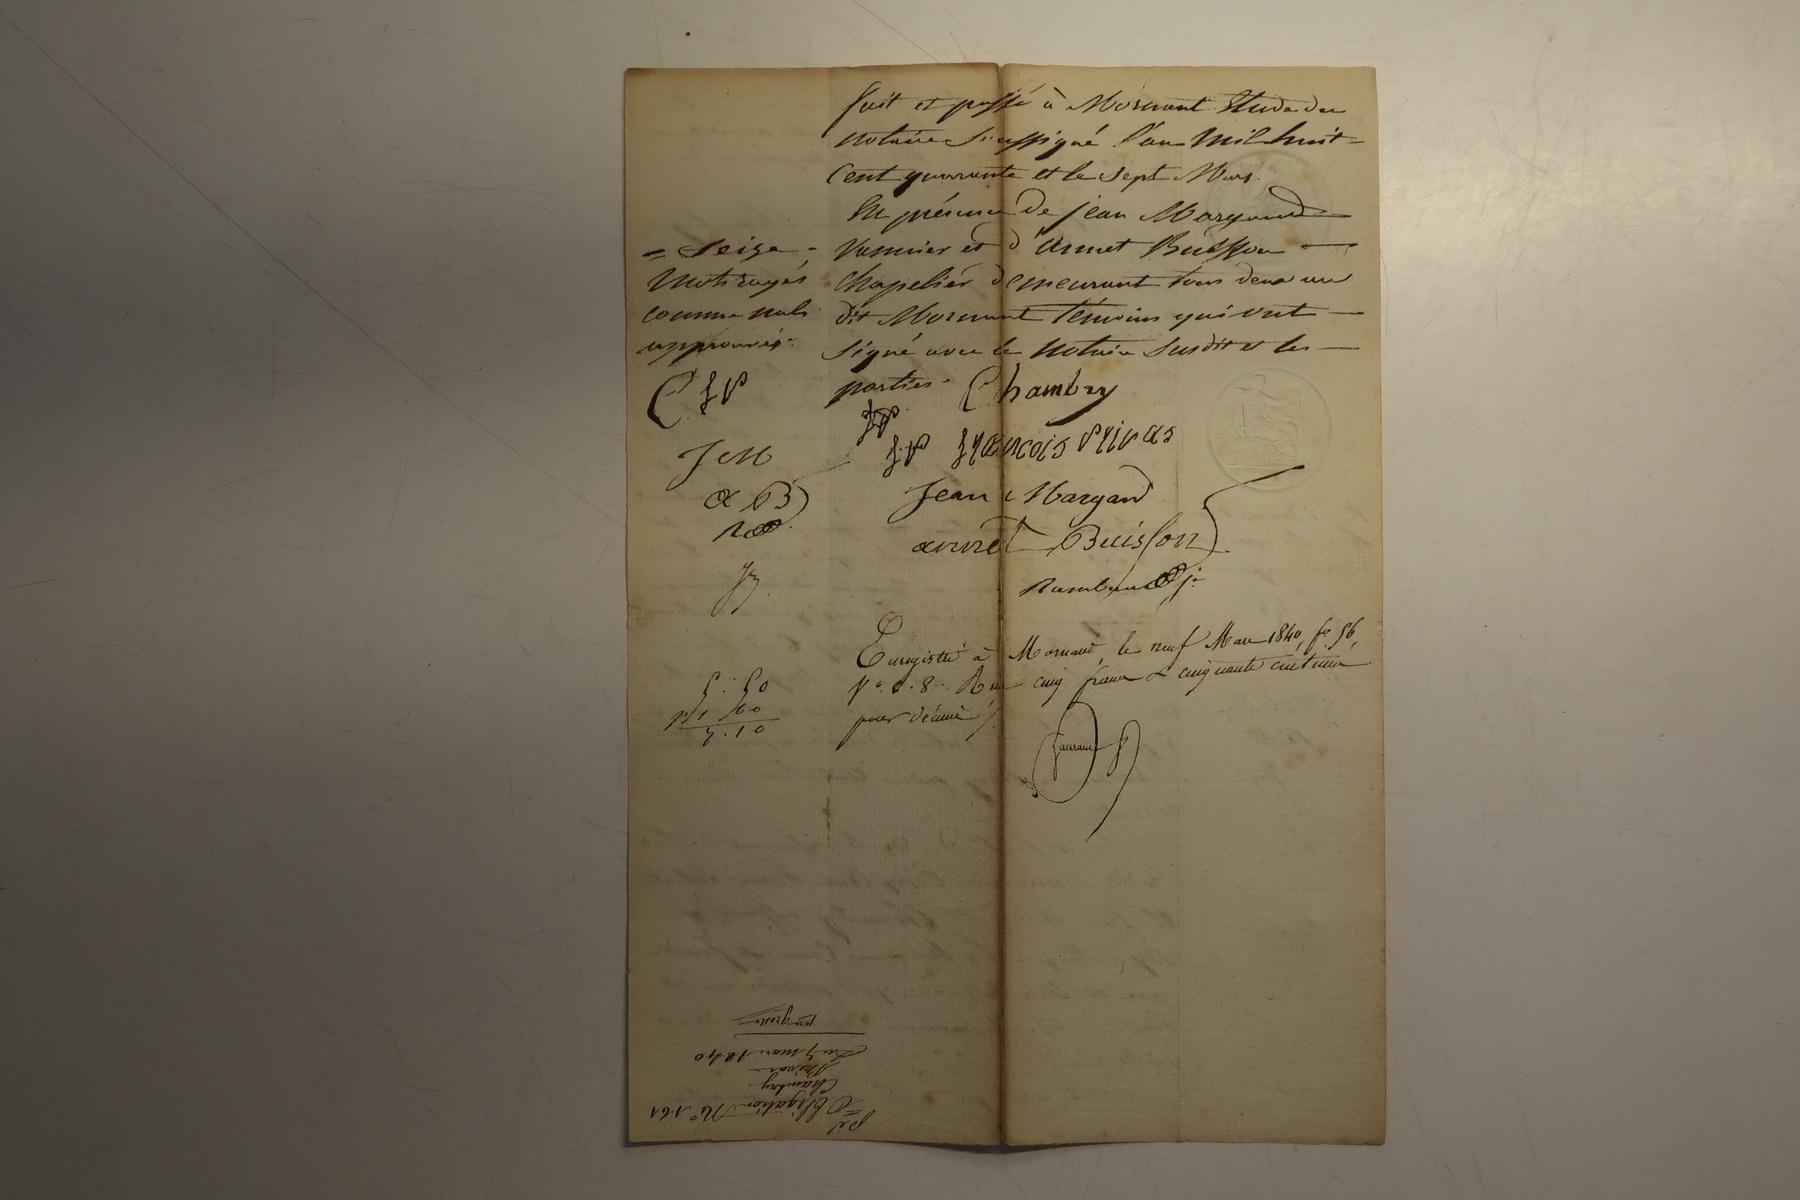 fait et passé à Mornant Etude du
notaire soussigné l'an mil huit
Cent quarante et le sept Mars.
En présence de jean Margand
Vannier et d'annet Buisson
Chapelier demeurant tous deux au
dit Mornant témoins qui ont
signé avec le notaire susdit et les
parties.
= Seize
Mots rayés
comme nuls
approuvés.
Chambry
françois privas
Jean Margand
annet Buisson
C
fP
JM
aB
Enregistré à Mornant, le neuf Mars 1840, fo 56,
Reçu cinq francs & cinquante centimes
pour décime
5.50
7.10
Obligation No 161
Chambry
Privas
Du 7 mars 1840
grosse